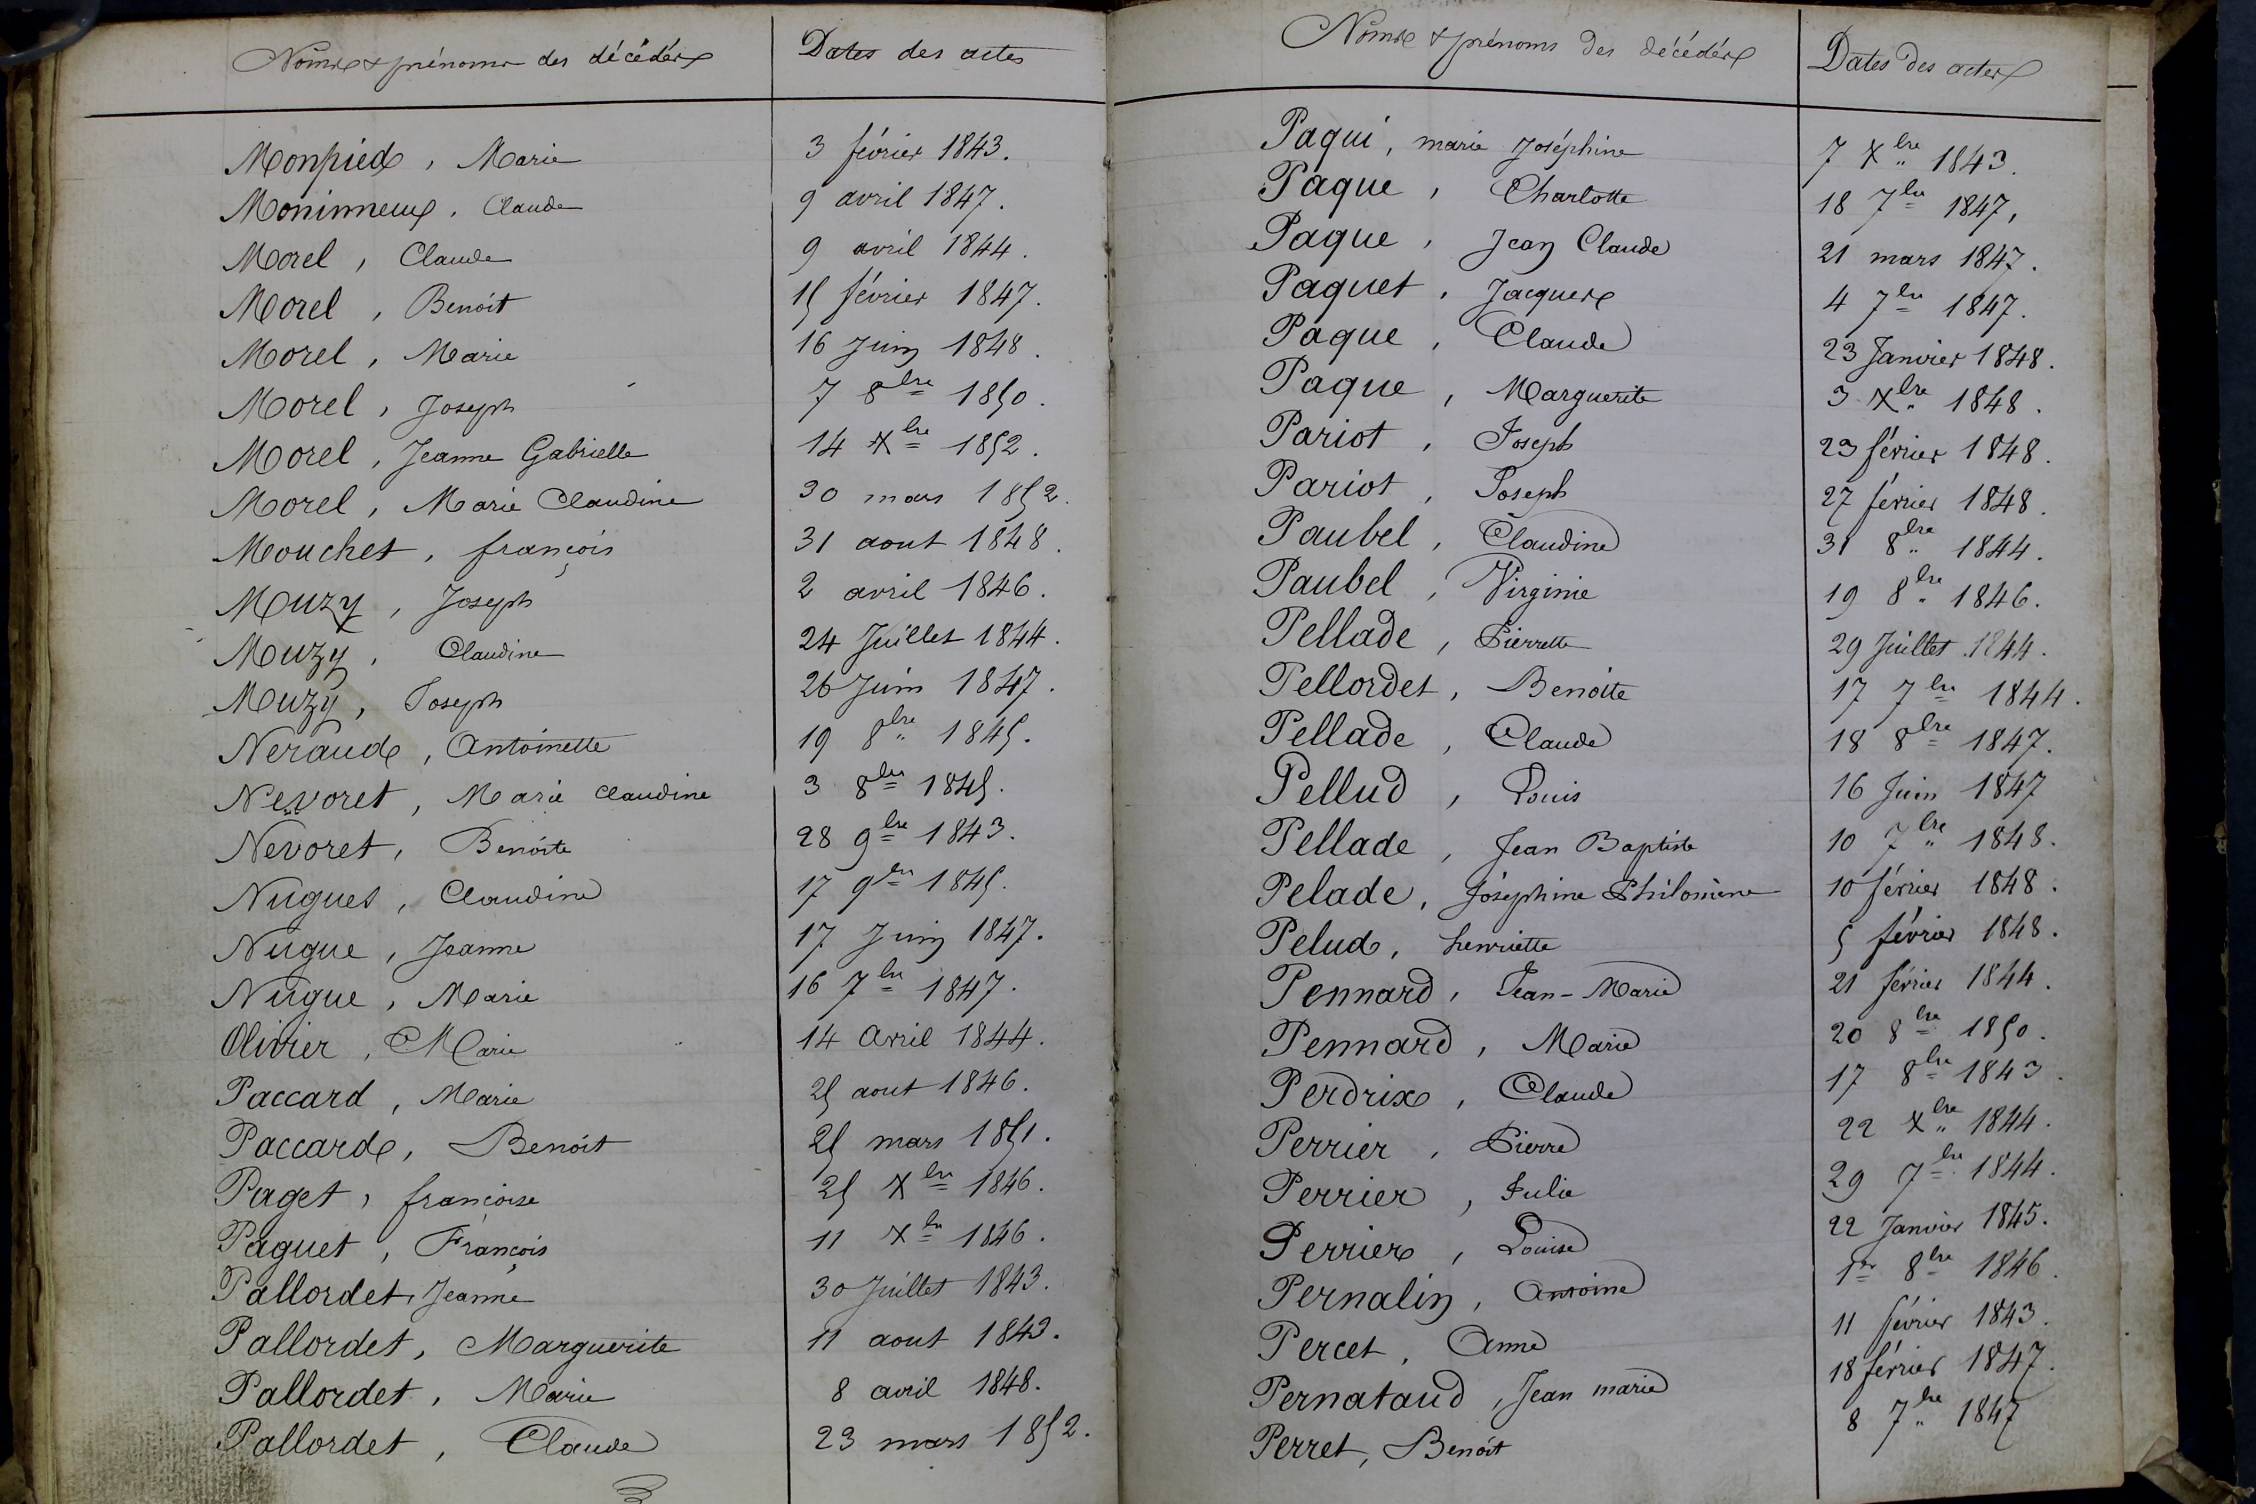 Noms & prénoms des décédés Dates des actes
Monpied, Marie 3 février 1843.
Moninneux, Claude 9 avril 1847.
Morel, Claude 9 avril 1844.
Morel, Benoit 15 février 1847.
Morel, Marie 16 Juin 1848.
Morel, Joseph 7 8bre 1850.
Morel, Jeanne Gabrielle 14 Xbre 1852.
Morel, Marie Claudine 30 mars 1852.
Mouchet, françois 31 aout 1848.
Muzy, Joseph 2 avril 1846.
Muzy, Claudine 24 Juillet 1844.
Muzy, Joseph 26 Juin 1847.
Neraud, Antoinette 19 8bre 1845.
Nevoret, Marie Claudine 3 8bre 1845.
Nevoret, Benoite 28 9bre 1843.
Nugues, Claudine 17 9bre 1845.
Nugue, Jeanne 17 Juin 1847.
Nugue, Marie 16 7bre 1847.
Olivier, Marie 14 Avril 1844.
Paccard, Marie 25 aout 1846.
Paccard, Benoit 25 mars 1851.
Paget, françoise 25 Xbre 1846.
Paquet, François 11 Xbre 1846.
Pallordet, Jeanne 30 Juillet 1843.
Pallordet, Marguerite 11 aout 1843.
Pallordet, Marie 8 avril 1848.
Pallordet, Claude 23 mars 1852.
Noms & prénoms des décédés Dates des actes
Paqui, marie Joséphine 7 Xbre 1843.
Paque, Charlotte 18 7bre 1847,
Paque, Jean Claude 21 mars 1847.
Paquet, Jacques 4 7bre 1847.
Paque, Claude 23 Janvier 1848.
Paque, Marguerite 3 Xbre 1848.
Pariot, Joseph 23 février 1848.
Pariot, Joseph 27 février 1848.
Paubel, Claudine 31 8bre 1844.
Paubel, Virginie 19 8bre 1846.
Pellade, Pierrette 29 Juillet 1844.
Pellordet, Benoite 17 7bre 1844.
Pellade, Claude 18 8bre 1847.
Pellud, Louis 16 Juin 1847
Pellade, Jean Baptiste 10 7bre 1848.
Pelade, Joséphine Philomène 10 février 1848.
Pelud, henriette 5 février 1848.
Pennard, Jean-Marie 21 février 1844.
Pennard, Marie 20 8bre 1850.
Perdrix, Claude 17 8bre 1843.
Perrier, Pierre 22 Xbre 1844.
Perrier, Julie 29 7bre 1844.
Perrier, Louise 22 Janvier 1845.
Pernalin, Antoine 1er 8bre 1846.
Percet, Anne 11 février 1843.
Pernataud, Jean marie 18 février 1847.
Perret, Benoit 8 7bre 1847